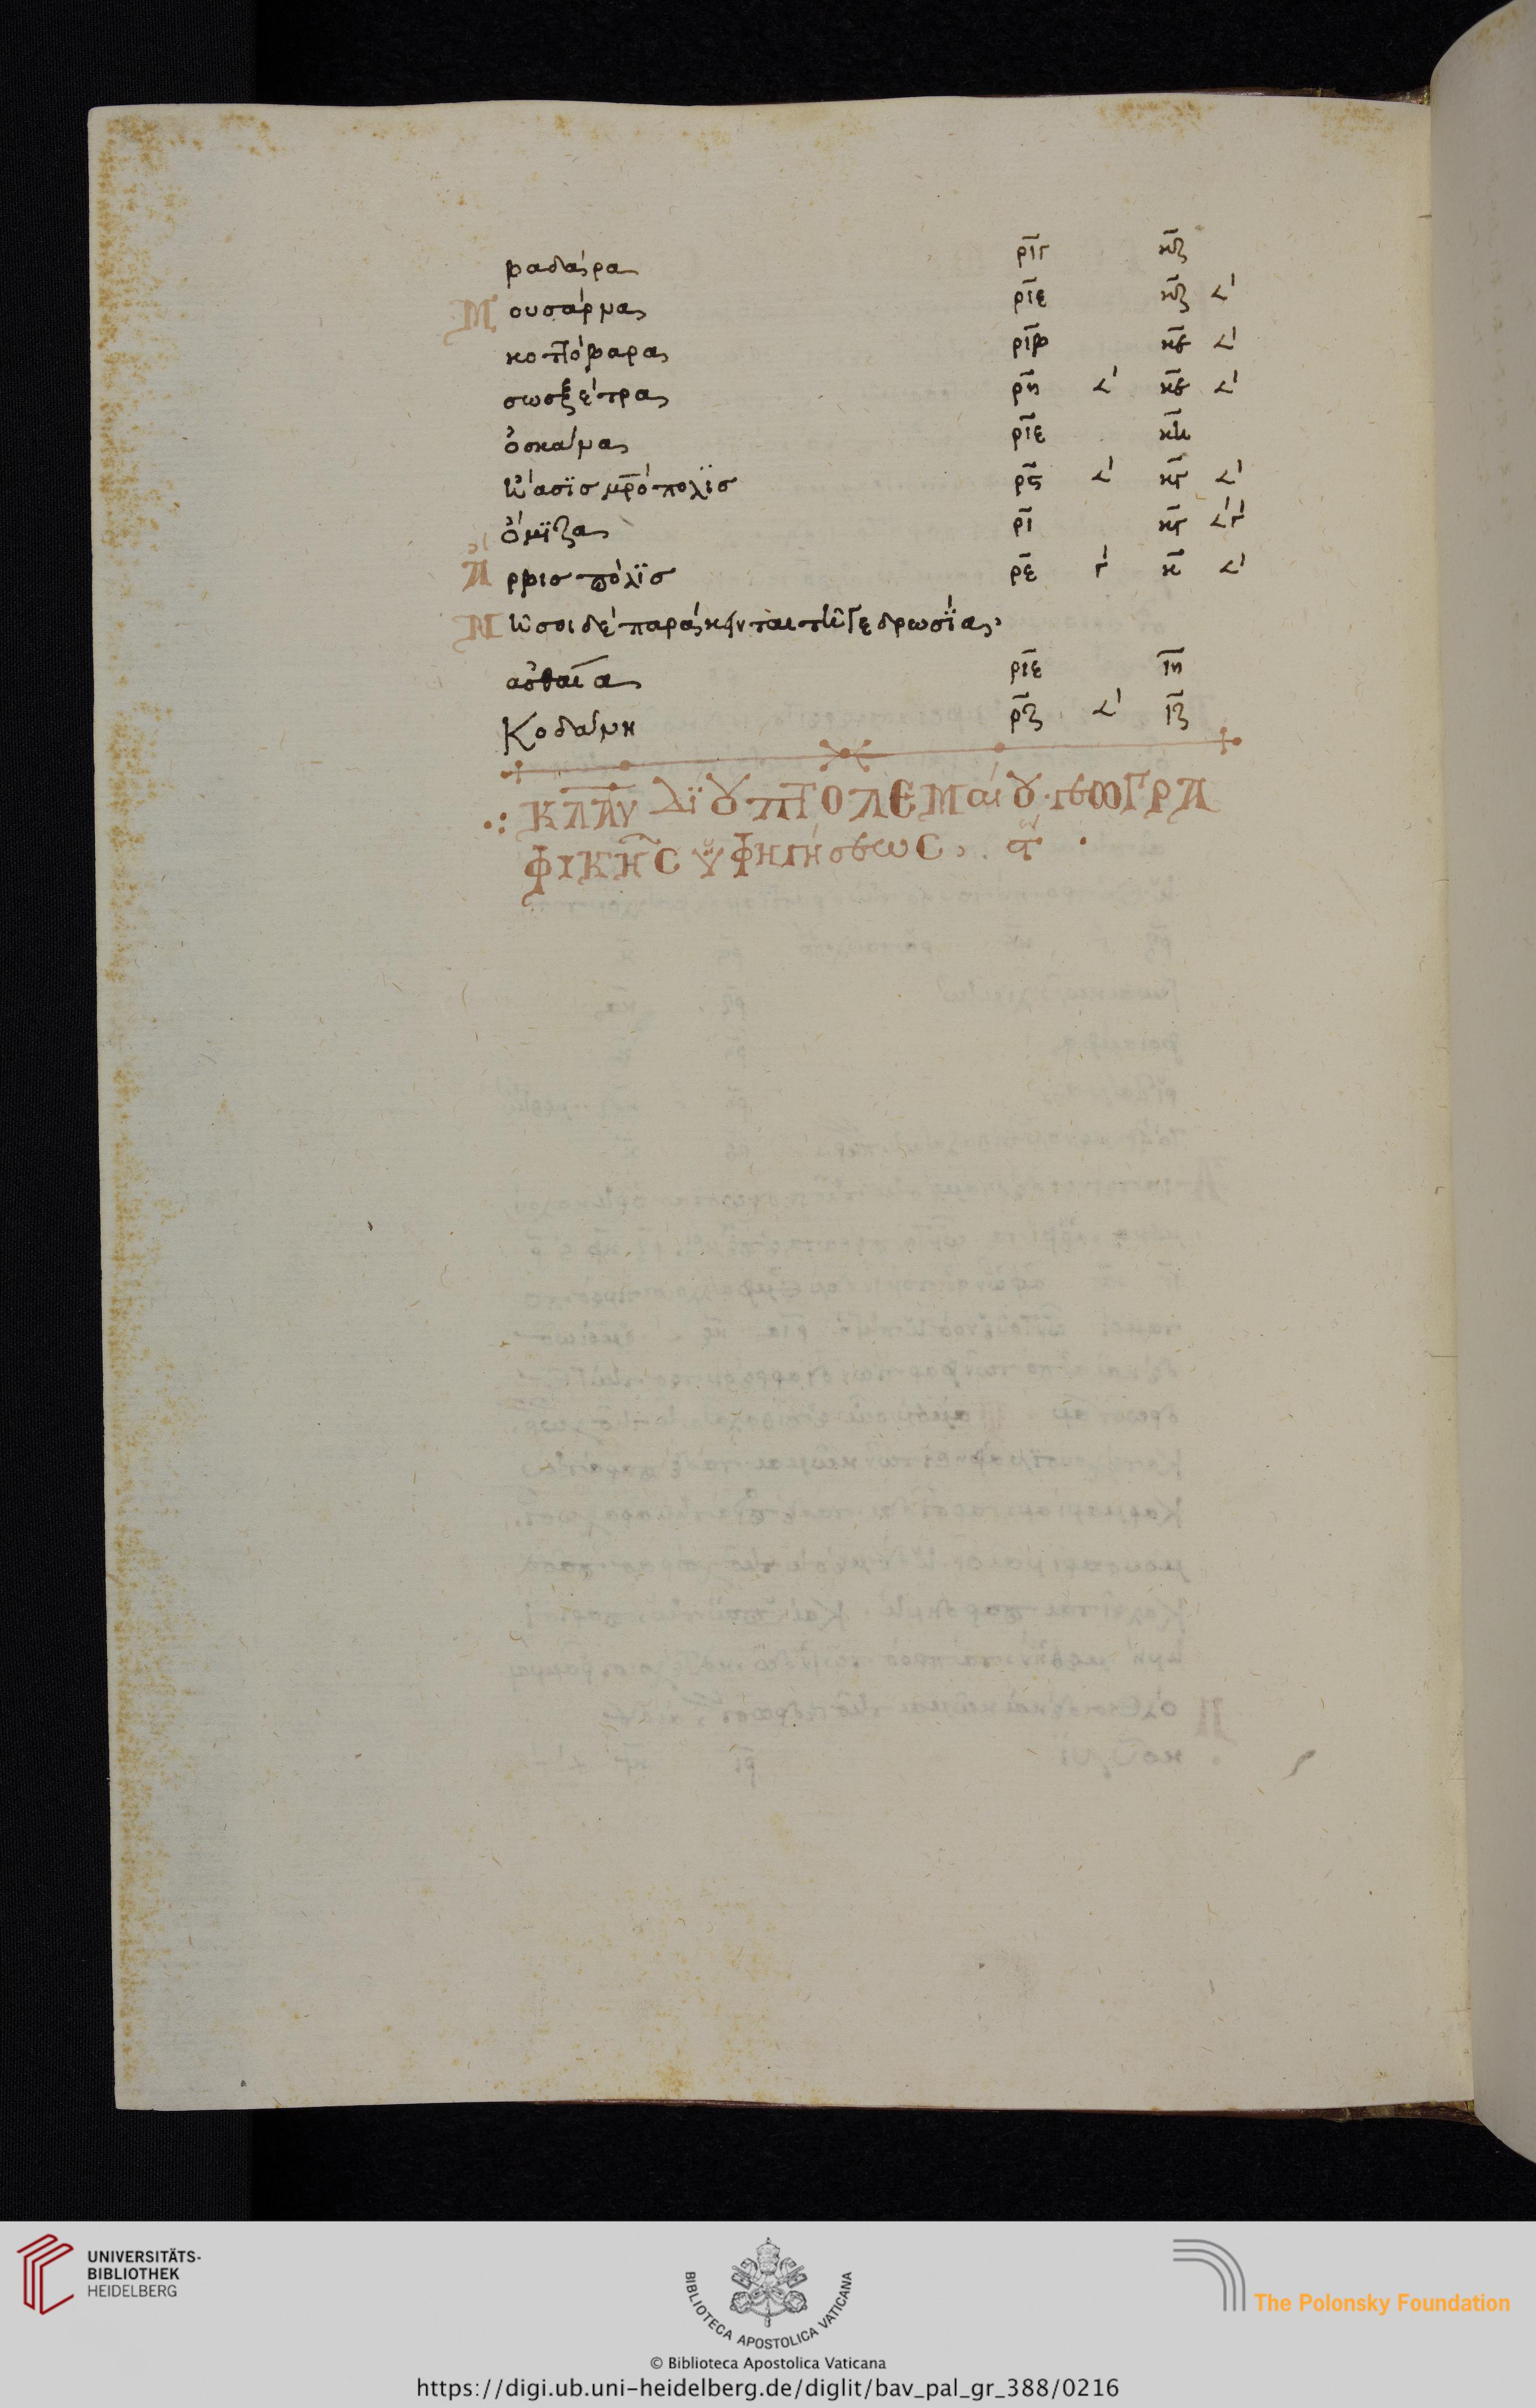 βαδάρα ριγ κζ
Μουσάρνα ριε κζ 𐅵
κοτόβαρα ριβ κε 𐅵
σωξέτρα ρη 𐅵 κε 𐅵
ὀσκάνα ριε κδ
κ γ
ὄμιζα ρι κγ 𐅵γ
Ἄρβις πόλϊσ ρε γ κ 𐅵
Νῆσοι δὲ παράκεινται τῆ Γεδρωσίας
ἀσθαία ριε ιη
Κοδάνη ρζ 𐅵 ιζ
ΚΛΑΥΔΪΟΥ ΠΤΟΛΕΜαίΟΥ ΓεωΓΡΑ
ΦΙΚΗΣ ὙΦΗΓήσεωΣ
UNIVERSITÄTS-
BIBLIOTHEK
HEIDELBERG
BIBLIOTECA APOSTOLICA VATICANA
The Polonsky Foundation
© Biblioteca Apostolica Vaticana
https://digi.ub.uni-heidelberg.de/diglit/bav_pal_gr_388/0216